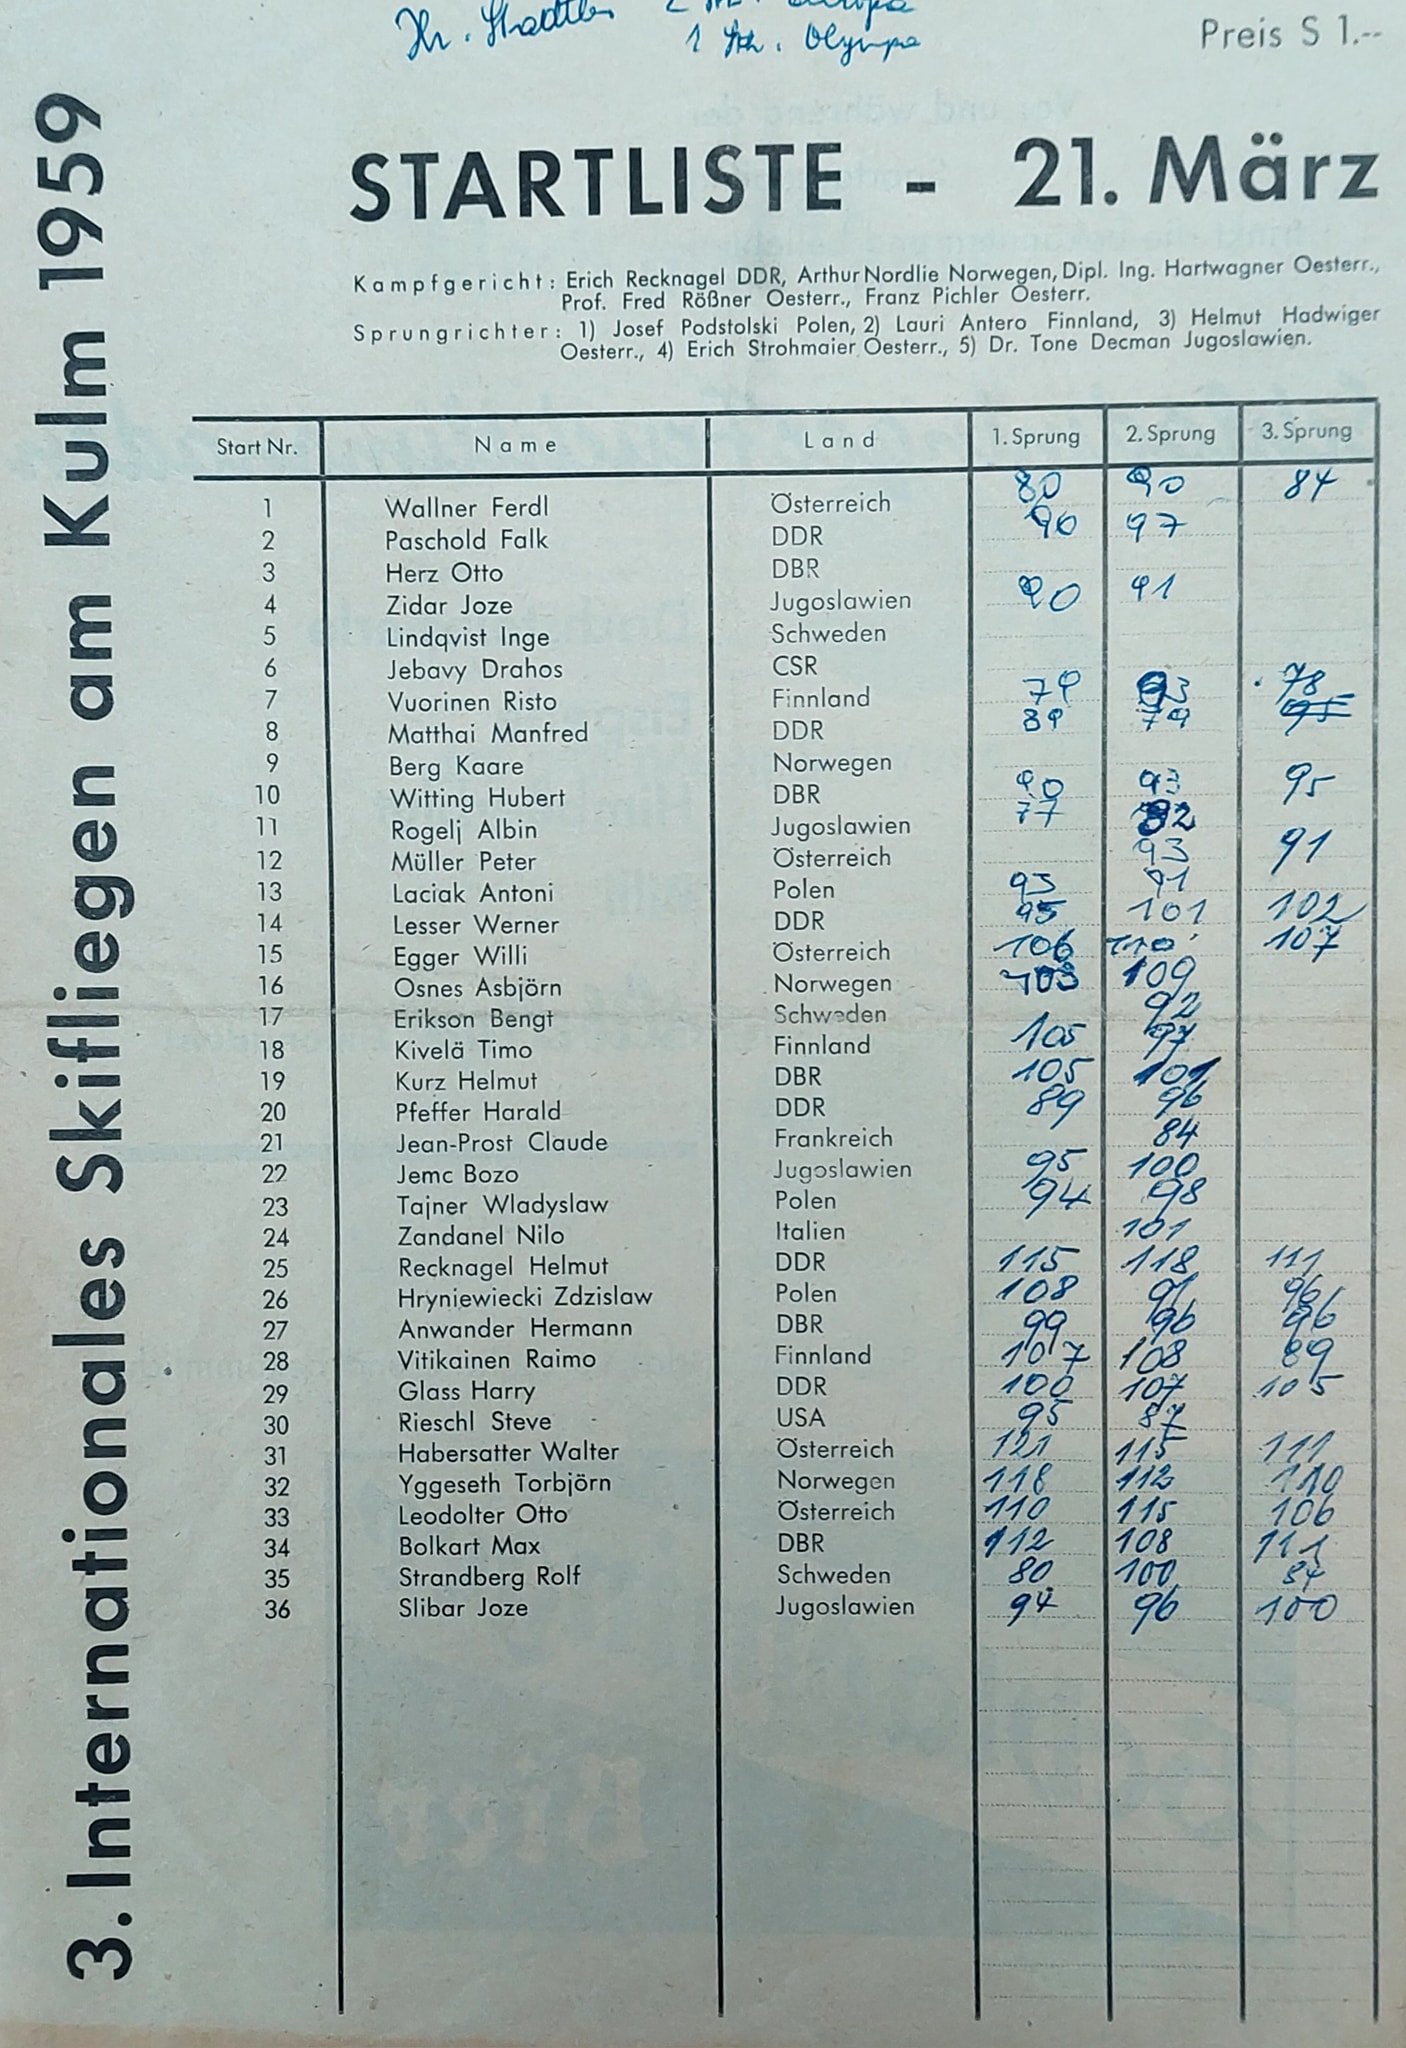 Hr. Stadtler 2 Stk. Europa
1 Stk. Olympa
Preis S 1.--
3. Internationales Skifliegen am Kulm 1959
STARTLISTE - 21. März
Kampfgericht: Erich Recknagel DDR, Arthur Nordlie Norwegen, Dipl. Ing. Hartwagner Oesterr.,
Prof. Fred Rößner Oesterr., Franz Pichler Oesterr.
Sprungrichter: 1) Josef Podstolski Polen, 2) Lauri Antero Finnland, 3) Helmut Hadwiger
Oesterr., 4) Erich Strohmaier Oesterr., 5) Dr. Tone Decman Jugoslawien.
Start Nr. Name Land 1. Sprung 2. Sprung 3. Sprung
1 Wallner Ferdl Österreich 80 90 84
2 Paschold Falk DDR 90 97
3 Herz Otto DBR
4 Zidar Joze Jugoslawien 90 91
5 Lindqvist Inge Schweden
6 Jebavy Drahos CSR
7 Vuorinen Risto Finnland 79 93 78
8 Matthai Manfred DDR 89 79 95
9 Berg Kaare Norwegen
10 Witting Hubert DBR 90 93 95
11 Rogelj Albin Jugoslawien 77 82
12 Müller Peter Österreich 93 91
13 Laciak Antoni Polen 93 91
14 Lesser Werner DDR 95 101 102
15 Egger Willi Österreich 106 110 107
16 Osnes Asbjörn Norwegen 103 109
17 Erikson Bengt Schweden 92
18 Kivelä Timo Finnland 105 97
19 Kurz Helmut DBR 105 101
20 Pfeffer Harald DDR 89 96
21 Jean-Prost Claude Frankreich 84
22 Jemc Bozo Jugoslawien 95 100
23 Tajner Wladyslaw Polen 94 98
24 Zandanel Nilo Italien 101
25 Recknagel Helmut DDR 115 118 111
26 Hryniewiecki Zdzislaw Polen 108 91 96
27 Anwander Hermann DBR 99 96 96
28 Vitikainen Raimo Finnland 107 108 89
29 Glass Harry DDR 100 107 105
30 Rieschl Steve USA 95 87
31 Habersatter Walter Österreich 121 115 111
32 Yggeseth Torbjörn Norwegen 118 112 110
33 Leodolter Otto Österreich 110 115 106
34 Bolkart Max DBR 112 108 111
35 Strandberg Rolf Schweden 80 100 84
36 Slibar Joze Jugoslawien 94 96 100